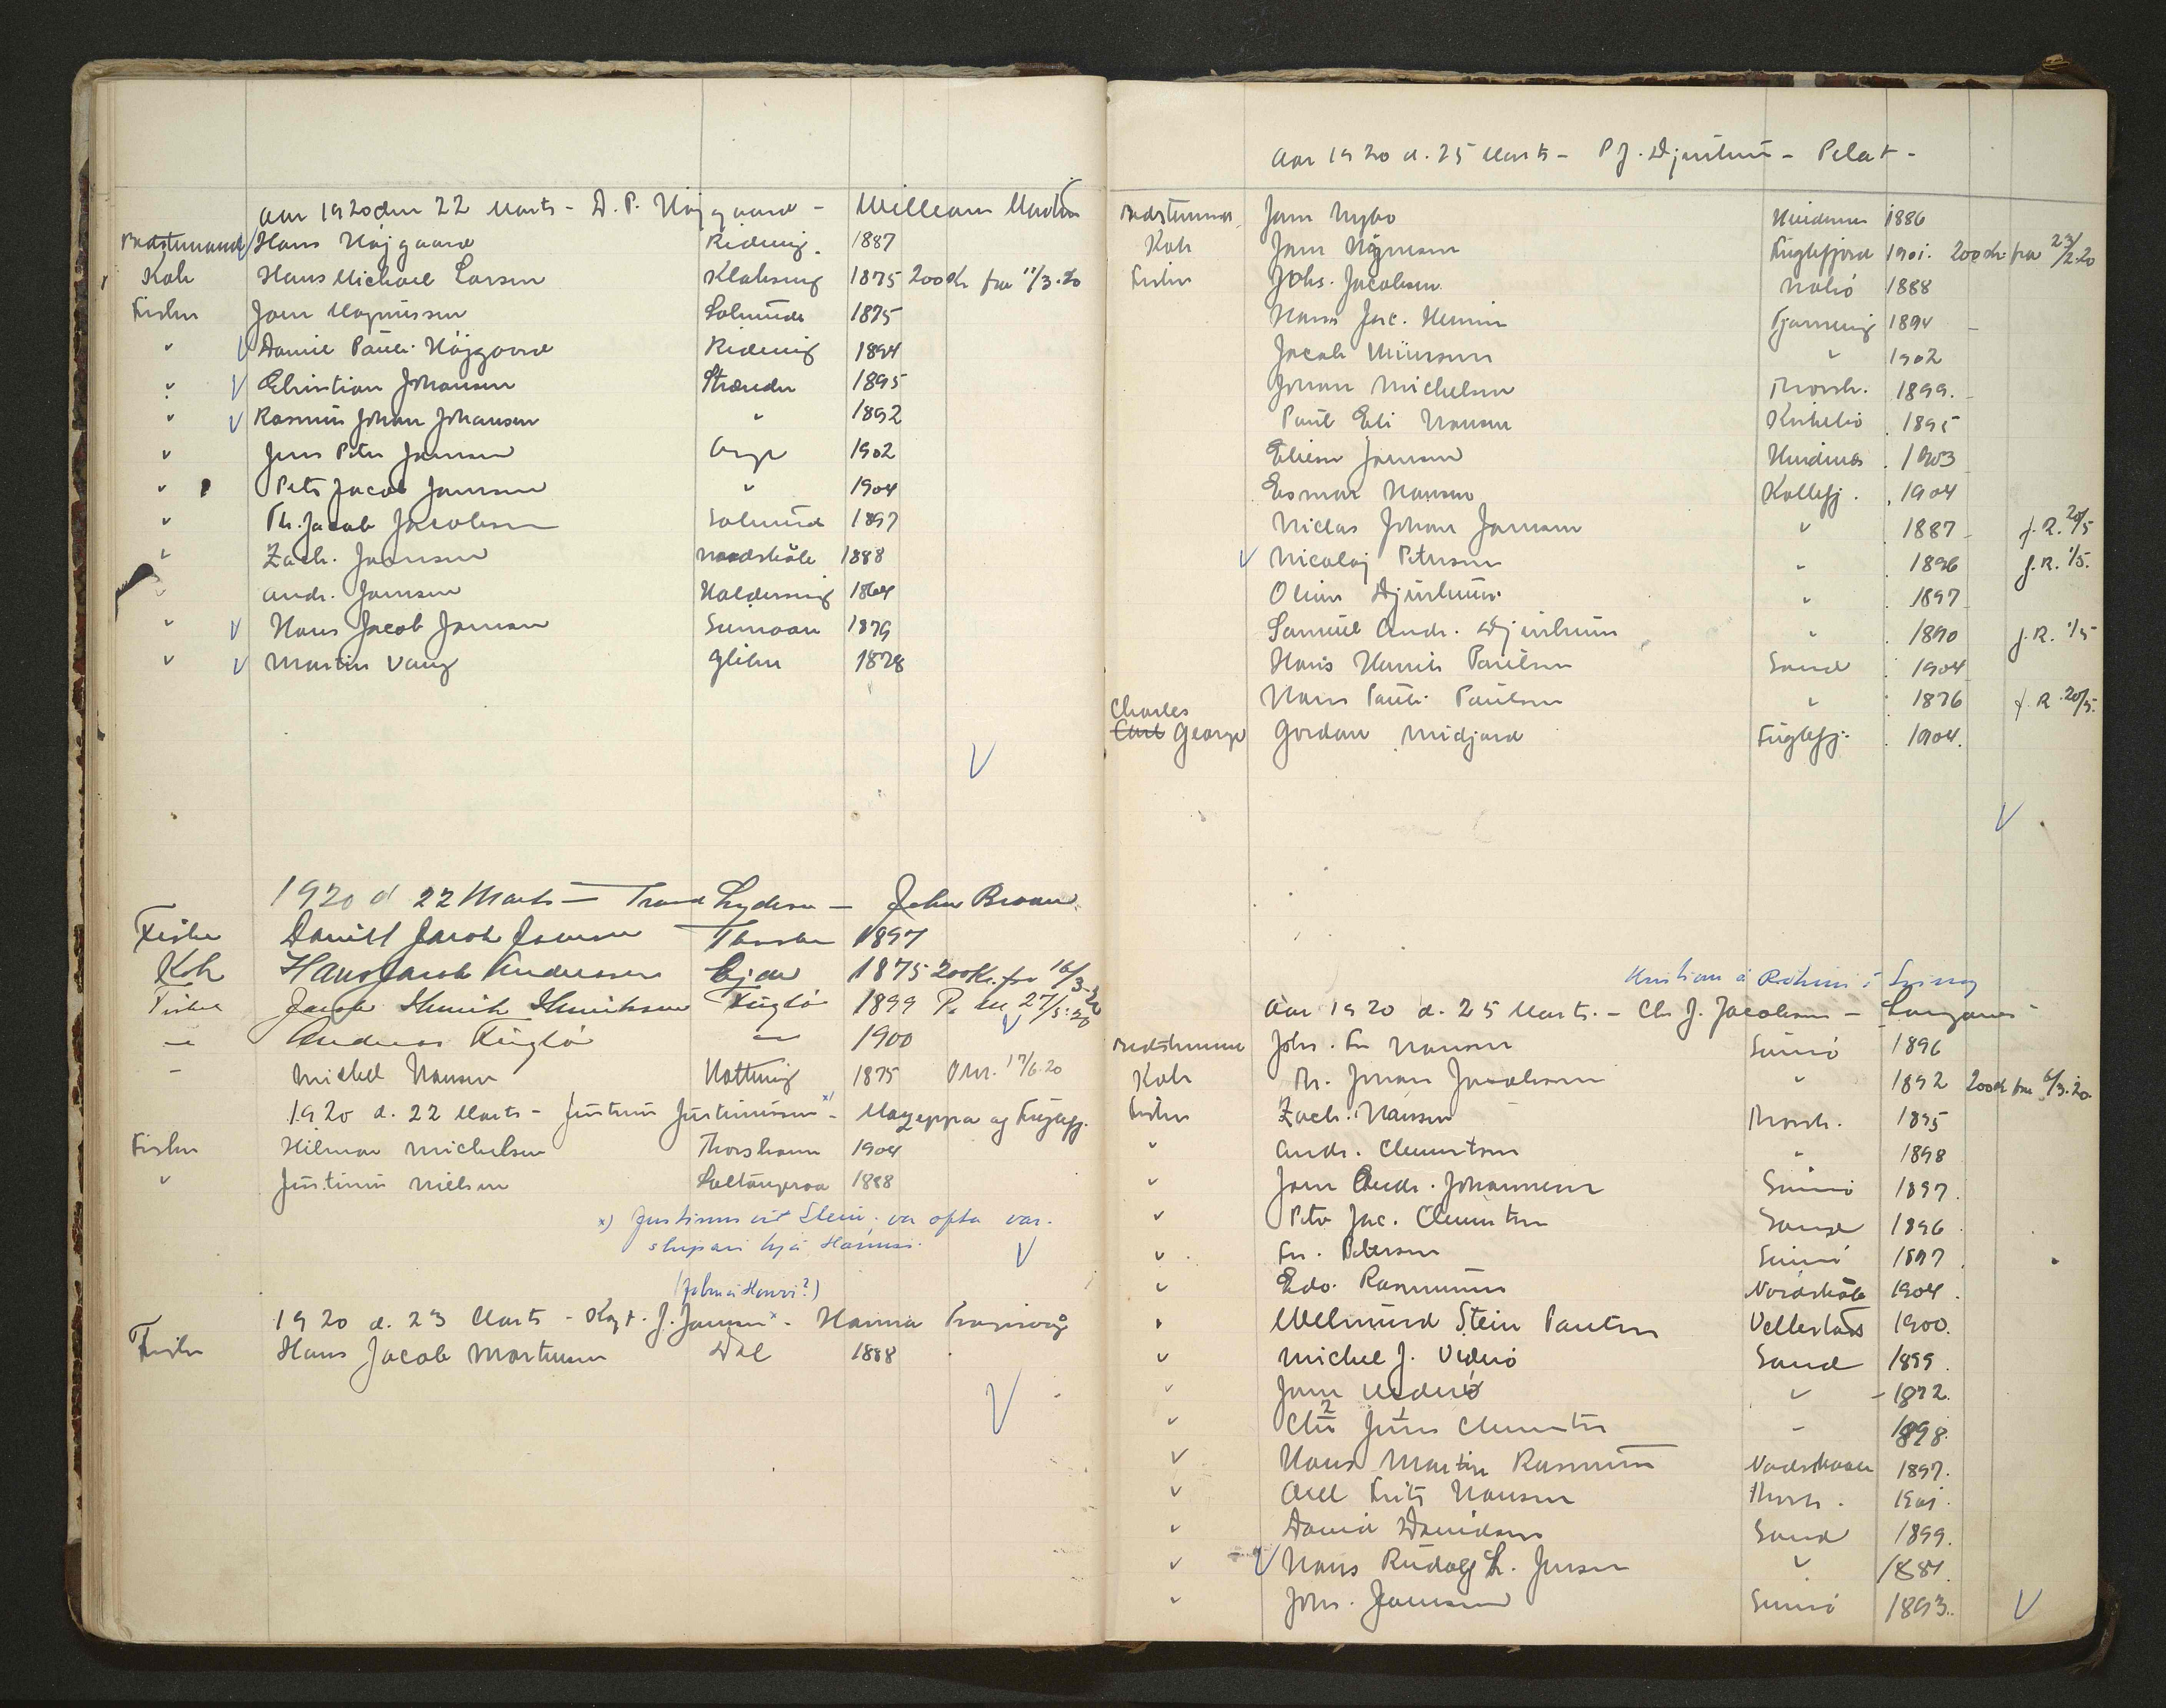 Aar 1920 den 22 Marts - D. P. Højgaard - William Martin
Bedstemand Hans Højgaard Ridevig 1887
Kok Hans Michael Larsen Klaksvig 1875 200 Kr fra 11/3.20
Fisker Joen Magnussen Solmunde 1875
" Daniel Pauli Højgaard Ridevig 1894
" Christian Johansen Strænder 1895
" Rasmus Johan Johansen " 1892
" Jens Peter Joensen 1902
" Peter Jacob Joensen " 1904
" Th. Jacob Jacobsen Solmunde 1897
" Zach. Joensen Nordskåle 1888
" Andr. Joensen Haldersvig 1864
" Hans Jacob Joensen Sumvaag 1879
" Martin Vang Glibre 1878
1920 d 22 Marts - Trond Lydersen - John Brown
Fisker Daniel Jacob Joensen Thorshavn 1897
Kok Hans Jacob Andreassen Ejde 1875 200 Kr. fra 16/3.20
Fisker Jacob Henrik Henriksen Fuglø 1899 27/5.20
- Andreas Fuglø - 1900
- Michel Hansen Hattervig 1875 17/6.20
1920 d. 22 Marts - Justinus Justinussen x) - Mazeppa af Fuglefj.
Fisker Hilmar Michelsen Thorshavn 1904
" Justinus Nielsen Saltangeraa 1888
x) Justinus við Stein. var ofta var.
skipari hjá Hánusi.
(Jákup í Horni?)
1920 d. 23 Marts - Kapt. J. Joensen x - Hanna Trangisvåg
Fisker Hans Jacob Mortensen Dal 1888
Aar 1920 d. 25 Marts - P J. Djurhuus - Pilot -
Bedstemand Joen Nybo Hvidenes 1886
Kok Joen Fuglefjord 1901. 200 Kr fra 23/2.20
Fisker Johs. Jacobsen Nolsø 1888
Hans Jac. Kjærnevig 1894
Jacob " 1902
Johan Michelsen Thorsh. 1899.
Paul Eli Hansen Kirkebø 1895
Eliesar Joensen Hvidenes 1903
Esmar Hansen Kollefj. 1904
Niclas Johan Joensen " 1887 f.R. 20/5
Nicolaj Petersen " 1896 f.R. 1/5.
Oliver Djurhuus " 1897
Samuel Andr. Djurhuus " 1890 f.R. 1/5
Hans Henrik Paulsen Sand 1904
Hans Pauli Paulsen " 1876 f.R. 20/5.
Charles
Carl George Gordon Midjord Fuglefj. 1904.
Kristian á Róthúsi í
Aar 1920 d. 25 Marts. - Chr. J. Jacobsen - Langanes
Bedstemand Johs. Fr. Hansen Sumbø 1896
Kok Th. Johan Jacobsen " 1892 200 Kr fra 6/3.20.
Fisker Zach. Hansen Thorsh. 1895
" Andr. Clementsen " 1898
" Joen Andr. Johannesen Sumbø 1897.
" Peter Jac. Clementsen Sand 1896
" Fr. Petersen Sumbø 1897
" Edv. Rasmussen Nordskåle 1904.
" Melmund Stein Poulsen Velbestad 1900.
" Michel J. Viderø Sand 1899.
" Joen Viderø " 1872.
" Chr 2 Juns 1 Clementsen - 1898.
" Hans Martin Rasmussen Nordskaale 1897.
" Axel Frits Hansen Thorsh. 1901.
" David Davidsen Sand 1899.
" Hans Rudolf L. Jensen " 1881.
" Johs. Joensen Sumbø 1893.